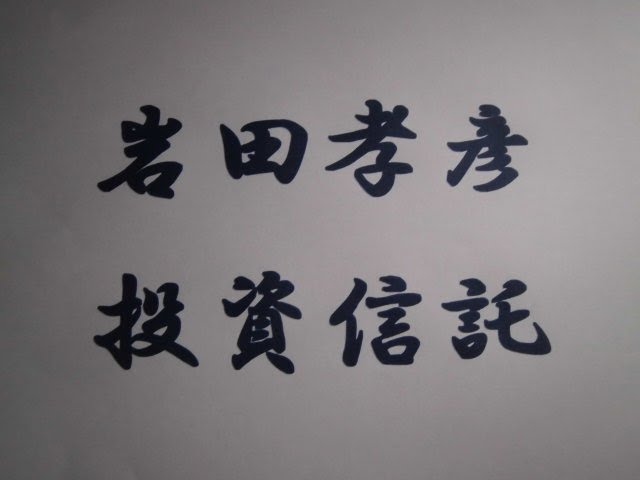 岩田孝彦
投資信託